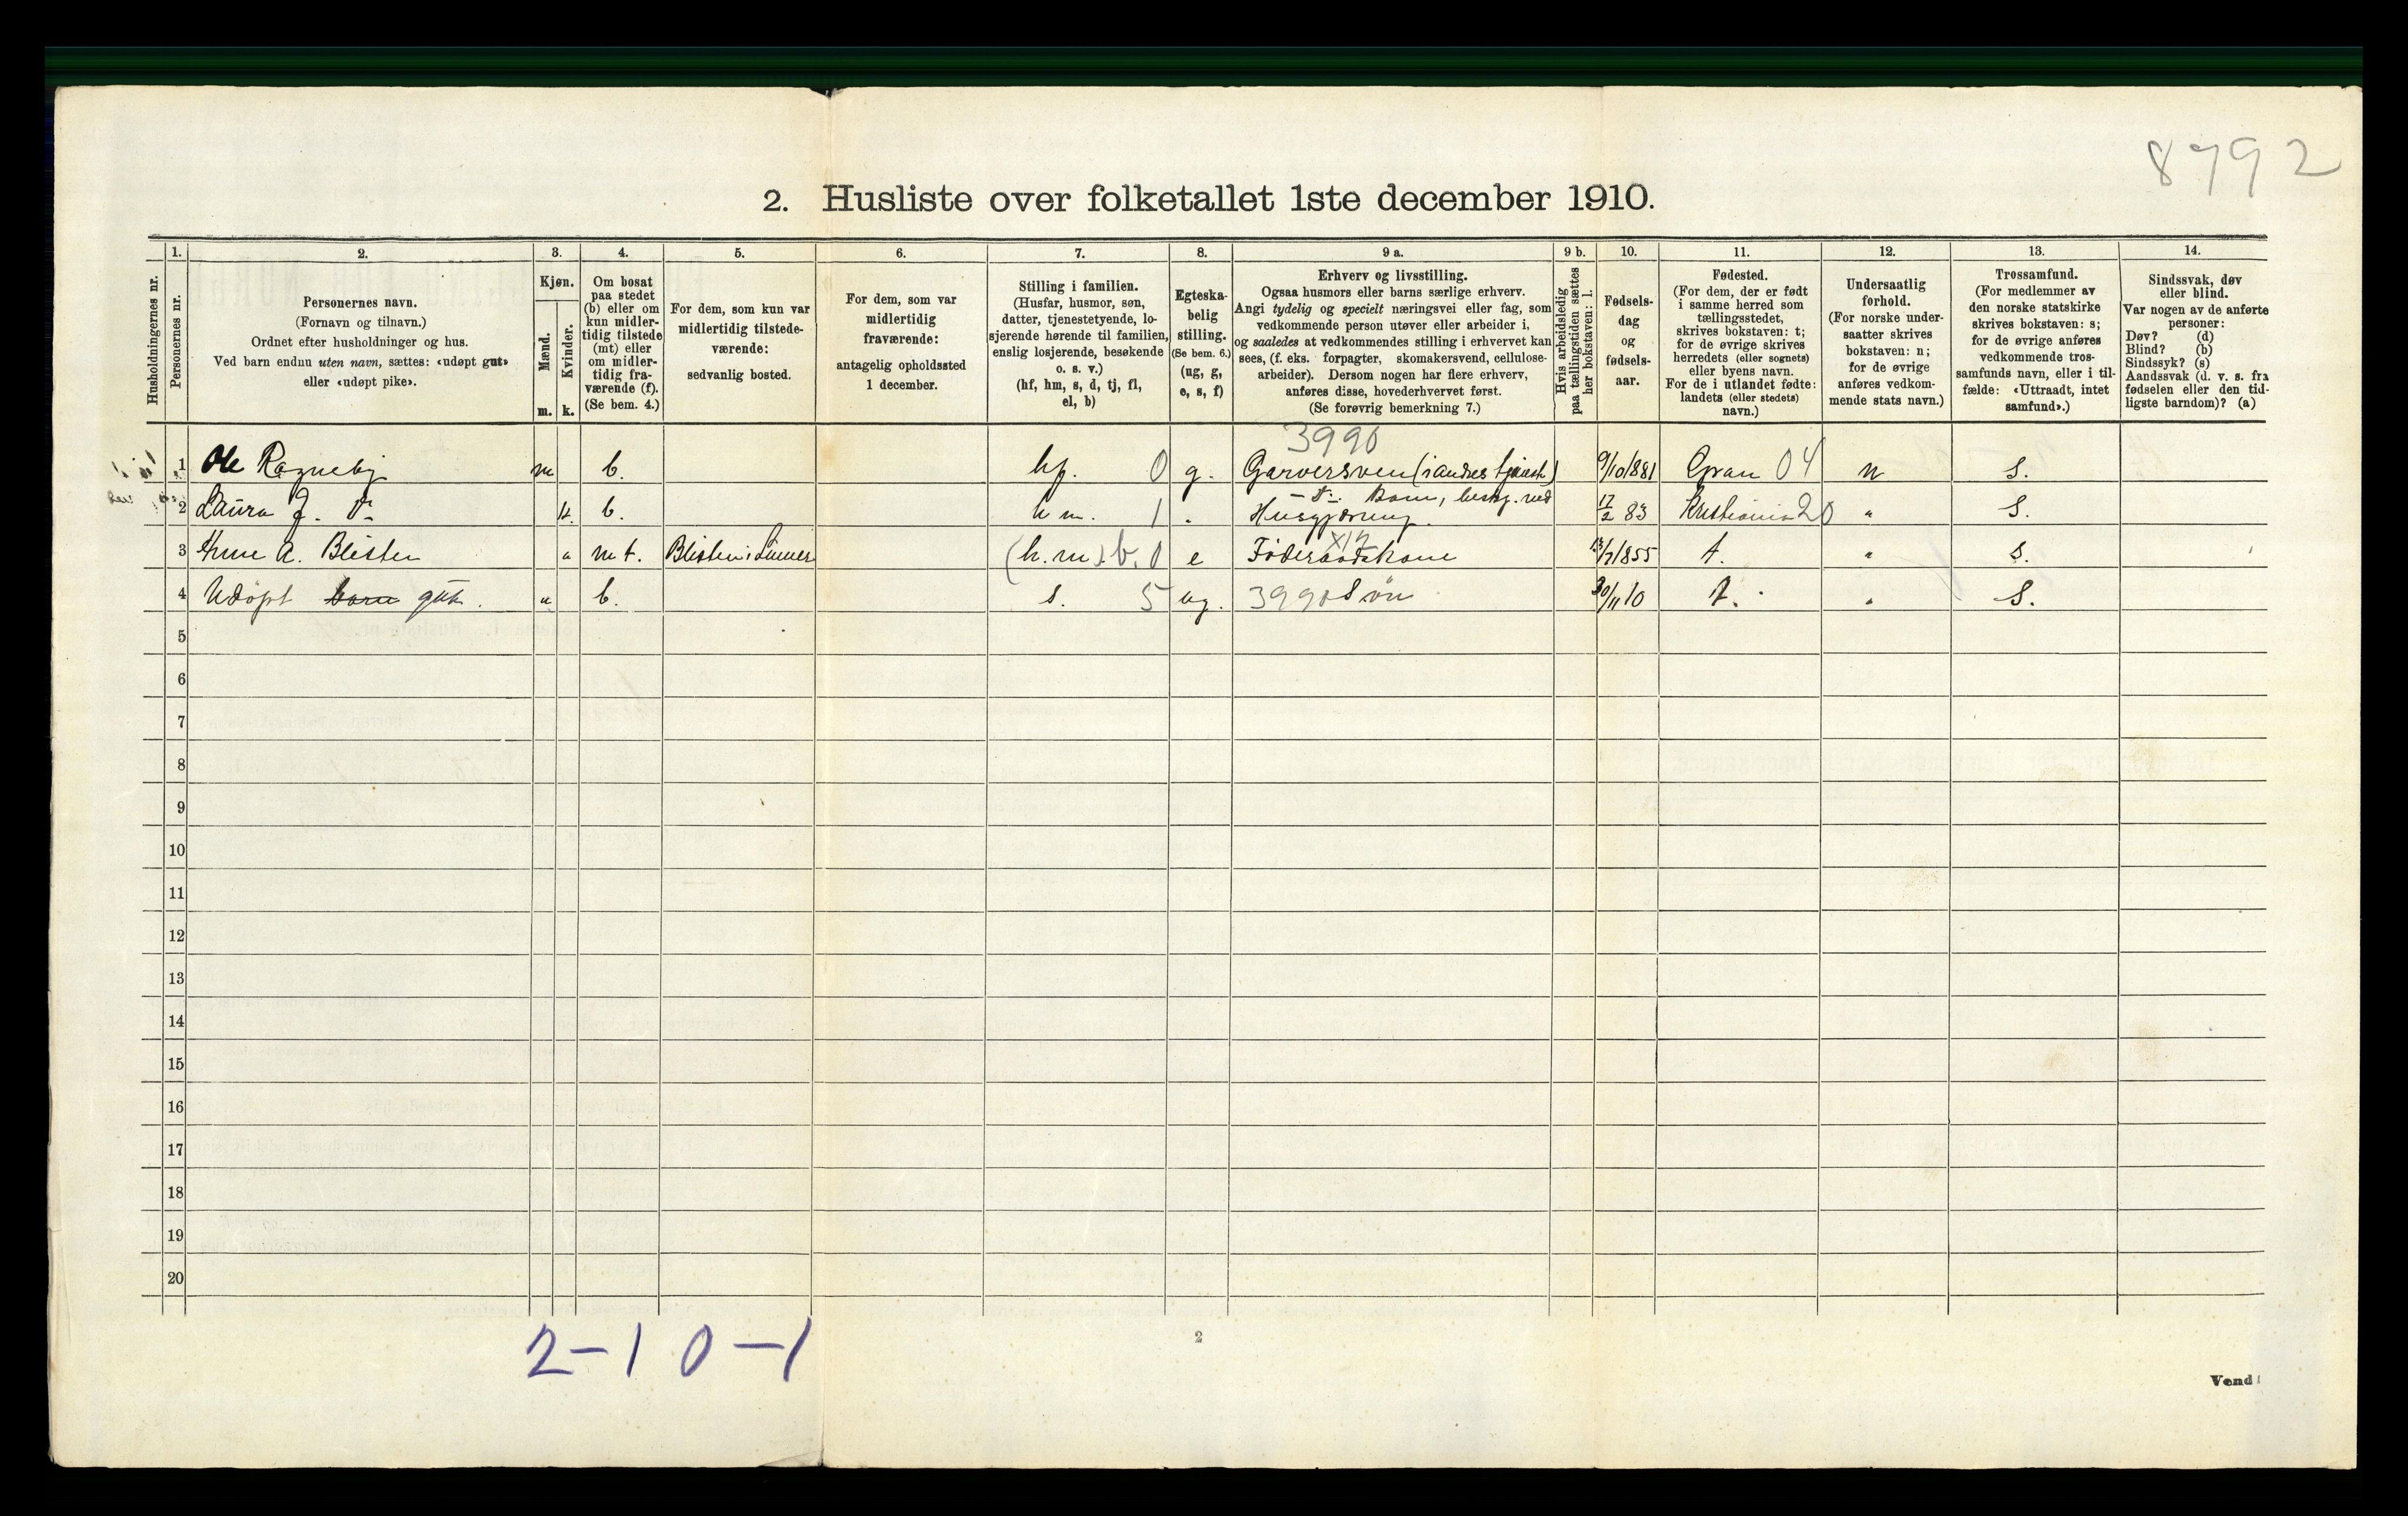 8792
2. Husliste over folketallet 1ste december 1910.
Husholdningernes nr.
1.
Personernes nr.
2.
Personernes navn.
(Fornavn og tilnavn.)
Ordnet efter husholdninger og hus.
Ved barn endnu uten navn, sættes: «udøpt gut»
eller «udøpt pike».
3.
Kjøn.
Mænd.
Kvinder.
m. k.
4.
Om bosat
paa stedet
(b) eller om
kun midler-
tidig tilstede
(mt) eller
om midler-
tidig fra-
værende (f).
(Se bem. 4.)
5.
For dem, som kun var
midlertidig tilstede-
værende:
sedvanlig bosted.
6.
For dem, som var
midlertidig
fraværende:
antagelig opholdssted
1 december.
7.
Stilling i familien.
(Husfar, husmor, søn,
datter, tjenestetyende, lo-
sjerende hørende til familien,
enslig losjerende, besøkende
o. s. v.)
(hf, hm, s, d, tj, fl,
el, b)
8.
Egteska-
belig
stilling.
(Se bem. 6.)
(ug, g,
e, s, f)
9 a.
Erhverv og livsstilling.
Ogsaa husmors eller barns særlige erhverv.
Angi tydelig og specielt næringsvei eller fag, som
vedkommende person utøver eller arbeider i,
og saaledes at vedkommendes stilling i erhvervet kan
sees, (f. eks. forpagter, skomakersvend, cellulose-
arbeider). Dersom nogen har flere erhverv,
anføres disse, hovederhvervet først.
(Se forøvrig bemerkning 7.)
9 b.
Hvis arbeidsledig
paa tællingstiden sættes
her bokstaven: l.
10.
Fødsels-
dag
og
fødsels-
aar.
11.
Fødested.
(For dem, der er født
i samme herred som
tællingsstedet,
skrives bokstaven: t;
for de øvrige skrives
herredets (eller sognets)
eller byens navn.
For de i utlandet fødte:
landets (eller stedets)
navn.)
12.
Undersaatlig
forhold.
(For norske under-
saatter skrives
bokstaven: n;
for de øvrige
anføres vedkom-
mende stats navn.)
13.
Trossamfund.
(For medlemmer av
den norske statskirke
skrives bokstaven: s;
for de øvrige anføres
vedkommende tros-
samfunds navn, eller i til-
fælde: «Uttraadt, intet
samfund».)
14.
Sindssvak, døv
eller blind.
Var nogen av de anførte
personer:
Døv? (d)
Blind? (b)
Sindssyk? (s)
Aandssvak (d. v. s. fra
fødselen eller den tid-
ligste barndom)? (a)
3990
1 Ole Ragneby m b. hf. 0 g. Garversven (i andres tjeneste) 9/10/881 Gran 04 n s.
2 Laura J. Do k. b. hm. 1 " Husgjerning 17/2 83 Kristiania 20 " s.
3 Anne A. Blisten " mt. Blisten i Lunner (h.m.) b. 0 e Føderaadskone /7/855 t. " s.
4 Udøpt barn gut. " b. s. 5 ug. 3990 Søn 30/11 10 t. " s.
5
6
7
8
9
10
11
12
13
14
15
16
17
18
19
20
2-1 0-1
2
Vend!